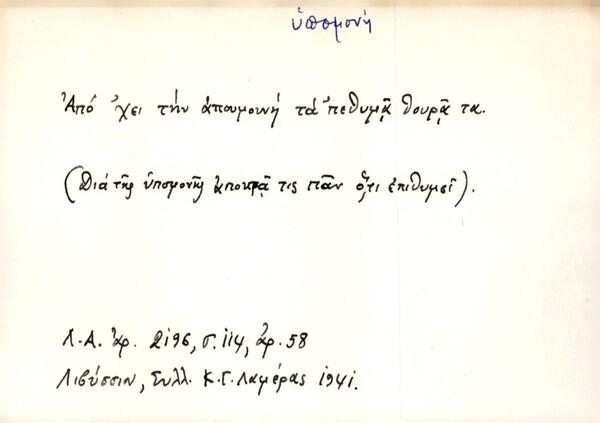 ὑπομονή
Ἀπὄ 'χει τήν ἀπουμονή τά 'πεθυμᾷ θουρᾷ τα.
(Διά τῆς ὑπομονῆς ἀποκτᾷ τις πᾶν ὅ,τι ἐπιθυμεῖ).
Λ.Α. ἀρ. 2196, σ. 114, ἀρ. 58
Λιβύσσιν, Συλλ. Κ.Γ. Λαμέρας 1941.